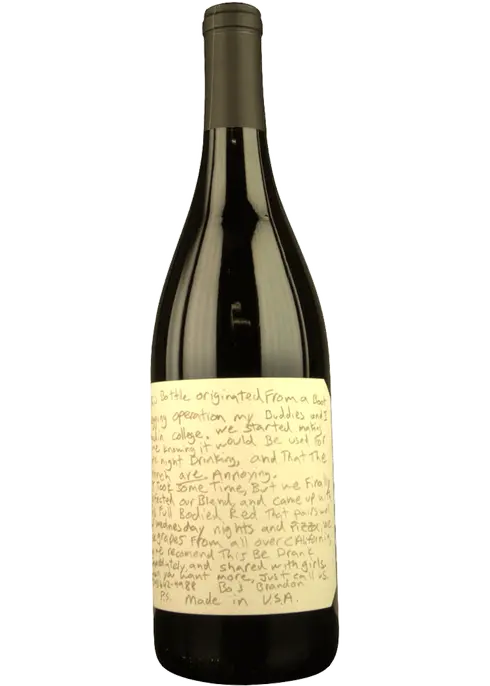 Bottle originated From a Boot
operation my Buddies and I
college. we started making
knowing it would Be used for
night Drinking, and That The
are Annoying.
Took Some Time, But we Finally
our Blend, and came up with
Full Bodied Red That pairs
wednesday nights and Pizza, we
grapes From all over California
recomend This Be Drank
and shared with girls
you want more, Just call us.
Bo & Brandon
P.S. Made in U.S.A.